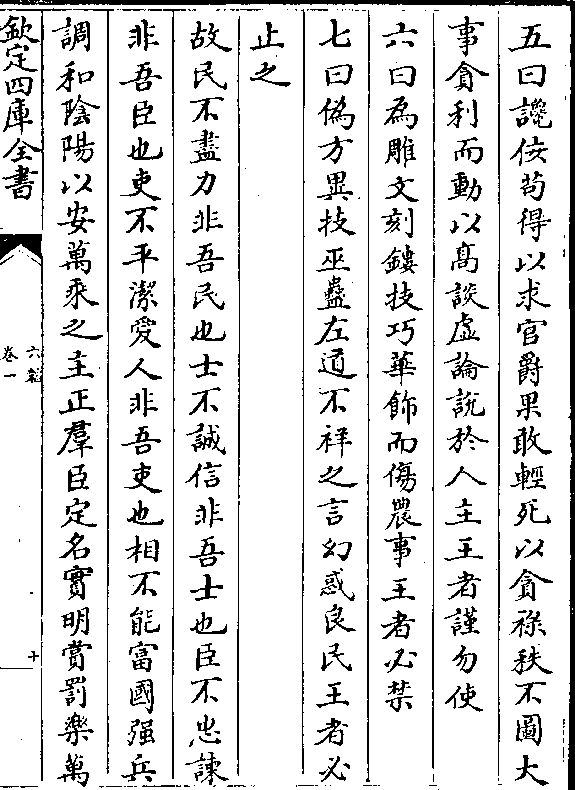 五曰讒佞苟得以求官爵果敢輕死以貪祿秩不圖大
事貪利而動以髙談虛論說於人主王者謹勿使
六曰為雕文刻鏤技巧華飾而傷農事王者必禁
七曰偽方異技巫蠱左道不祥之言幻惑良民王者必
止之
故民不盡力非吾民也士不誠信非吾士也臣不忠諫
非吾臣也吏不平潔愛人非吾吏也相不能富國强兵
調和陰陽以安萬乘之主正羣臣定名實明賞罰樂萬
欽定四庫全書
六韜
卷一
十